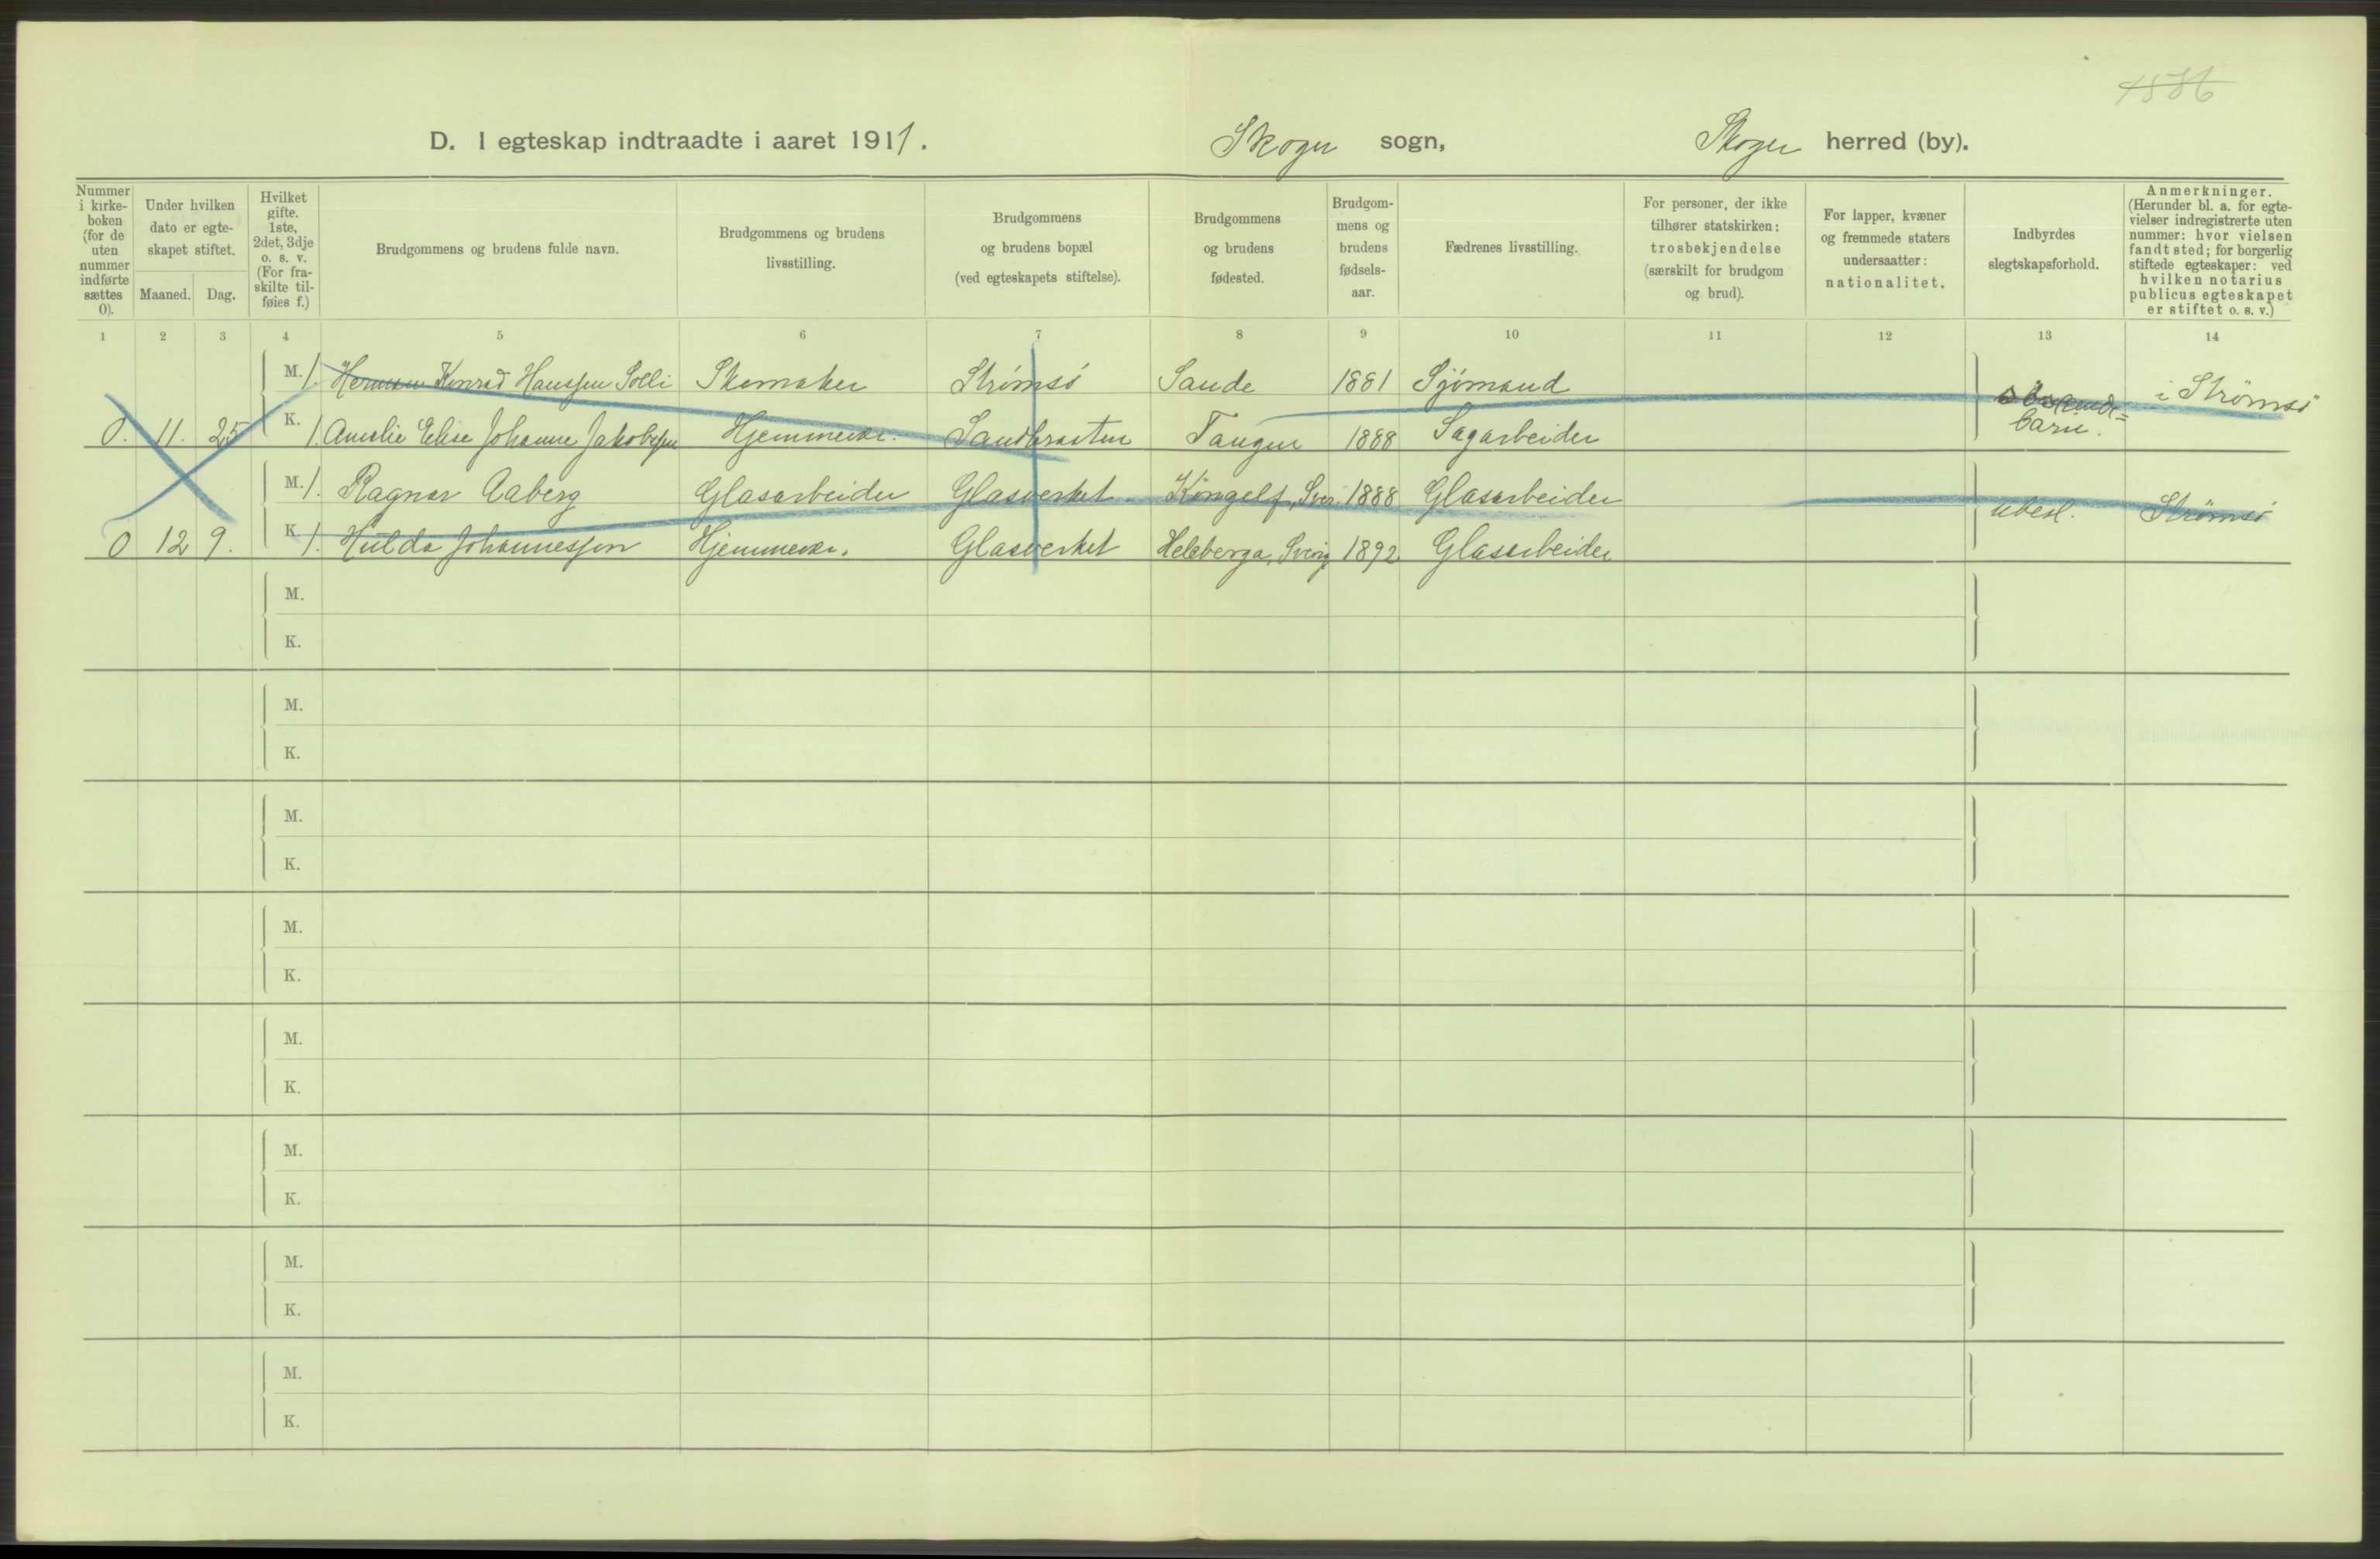 1586
D. I egteskap indtraadte i aaret 1911. Skoger sogn, Skoger herred (by).
Nummer i kirke-boken (for de uten nummer indførte sættes 0).
Under hvilken dato er egte-skapet stiftet.
Maaned. Dag.
Hvilket gifte. 1ste, 2det, 3dje o. s. v. (For fra-skilte til-føies f.)
Brudgommens og brudens fulde navn.
Brudgommens og brudens livsstilling.
Brudgommens og brudens bopæl (ved egteskapets stiftelse).
Brudgommens og brudens fødested.
Brudgom-mens og brudens fødsels-aar.
Fædrenes livsstilling.
For personer, der ikke tilhører statskirken: trosbekjendelse (særskilt for brudgom og brud).
For lapper, kvæner og fremmede staters undersaatter: nationalitet.
Indbyrdes slegtskapsforhold.
Anmerkninger. (Herunder bl. a. for egte-vielser indregistrerte uten nummer: hvor vielsen fandt sted; for borgerlig stiftede egteskaper: ved hvilken notarius publicus egteskapet er stiftet o. s. v.)
1 2 3 4 5 6 7 8 9 10 11 12 13 14
M. 1. Herman Konrad Hanssen Solli Skomaker Strømsö Sande 1881 Sjömand söskende= i Strømsö
0. 11. 25 K. 1. Amalie Elise Johanne Jakobsen Hjemmevær. Tangen 1888 Sagarbeider barn.
M. 1. Ragnar Aaberg Glasarbeider Glasverket Kongelf, Sver. 1888 Glasarbeider ubesl. Strømsö
0 12 9. K. 1. Hulda Johannessen Hjemmevær. Glasverket Sverig 1892 Glasarbeider
M.
K.
M.
K.
M.
K.
M.
K.
M.
K.
M.
K.
M.
K.
M.
K.